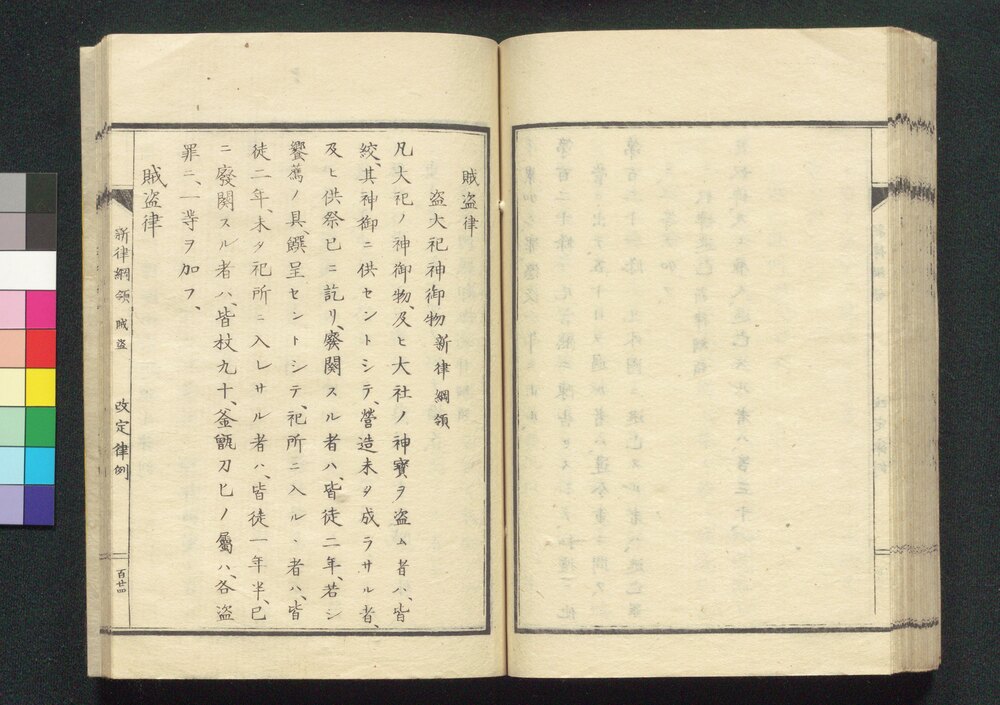 賊盗律
盗大祀神御物 新律綱領
凡大祀ノ神御物、及ヒ大社ノ神寶ヲ盗ム者ハ、皆
絞、其神御ニ供セントシテ、營造未タ成ラサル者、
及ヒ供祭已ニ訖リ、廢闋スル者ハ、皆徒二年、若シ
饗薦ノ具、饌呈セントシテ、祀所ニ入ル、者ハ、皆
徒二年、未タ祀所ニ入レサル者ハ、皆徒一年半、已
ニ廢闋スル者ハ、皆杖九十、釜甑刀匕ノ屬ハ、各盗
罪ニ、一等ヲ加フ、
賊盗律
新律綱領 賊盗 改定律例 百廿四